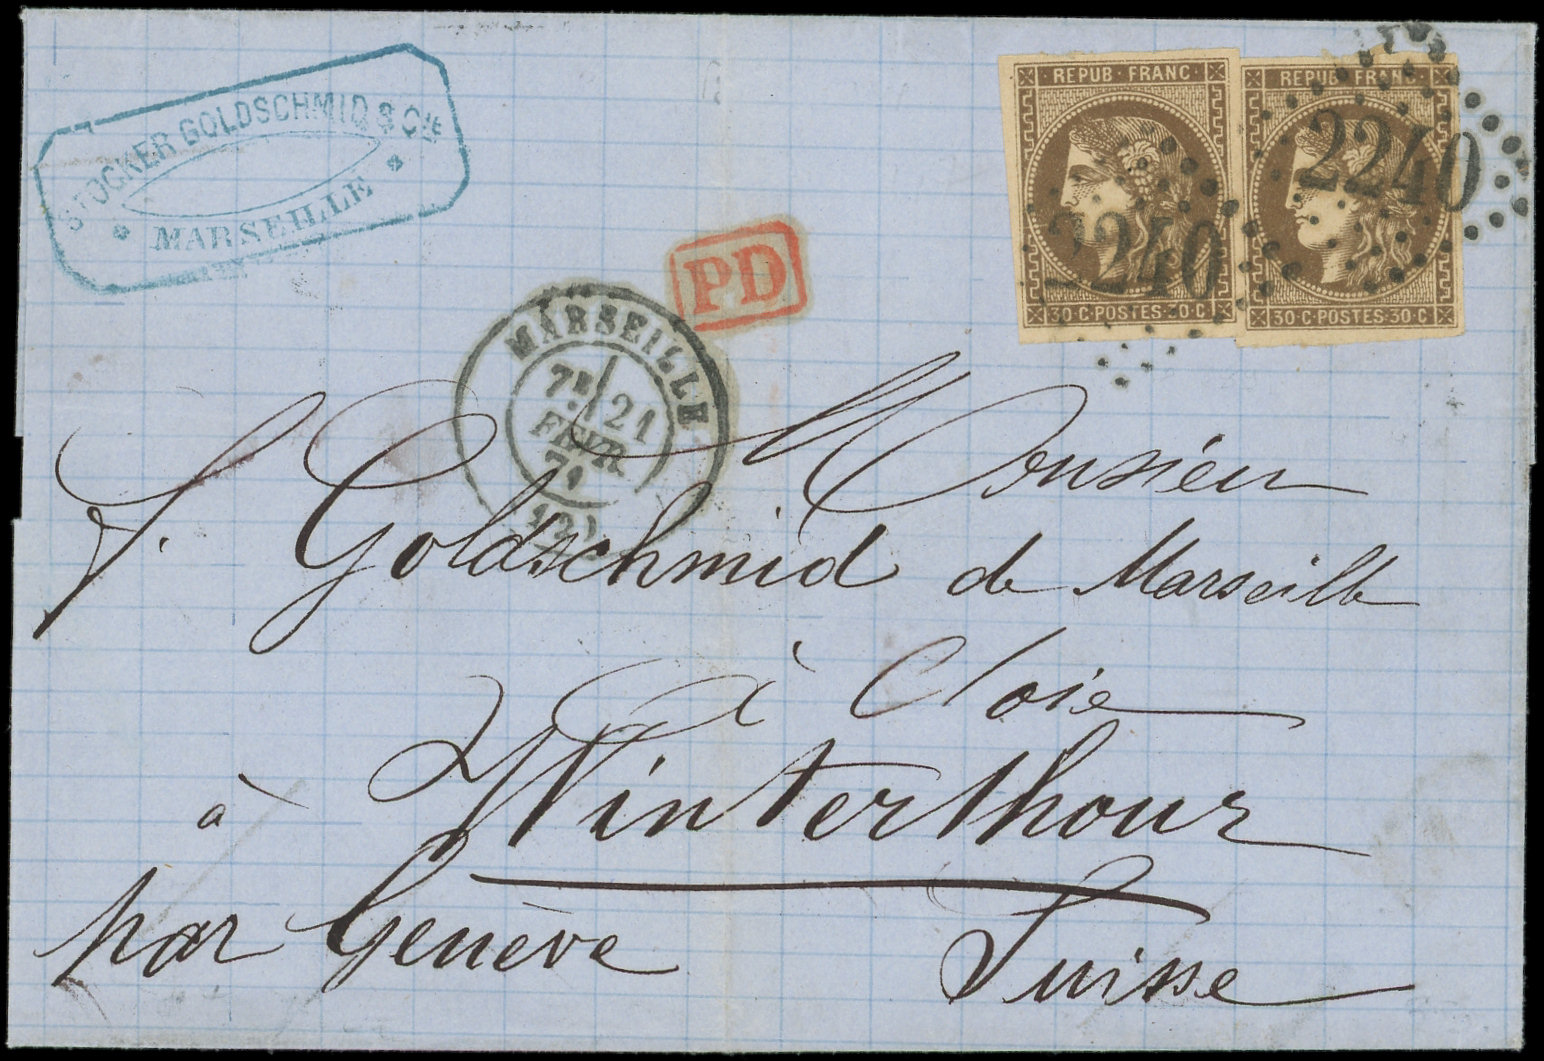 STOCKER GOLDSCHMID & CIE
* MARSEILLE *
REPUB · FRANC
30 C·POSTES·30 C
2240
REPUB · FRANC
30 C·POSTES·30 C
2240
PD
MARSEILLE
21
FEVR
71
Monsieur
J. Goldschmid de Marseille
à
à
Winterthour
par Genève
Suisse